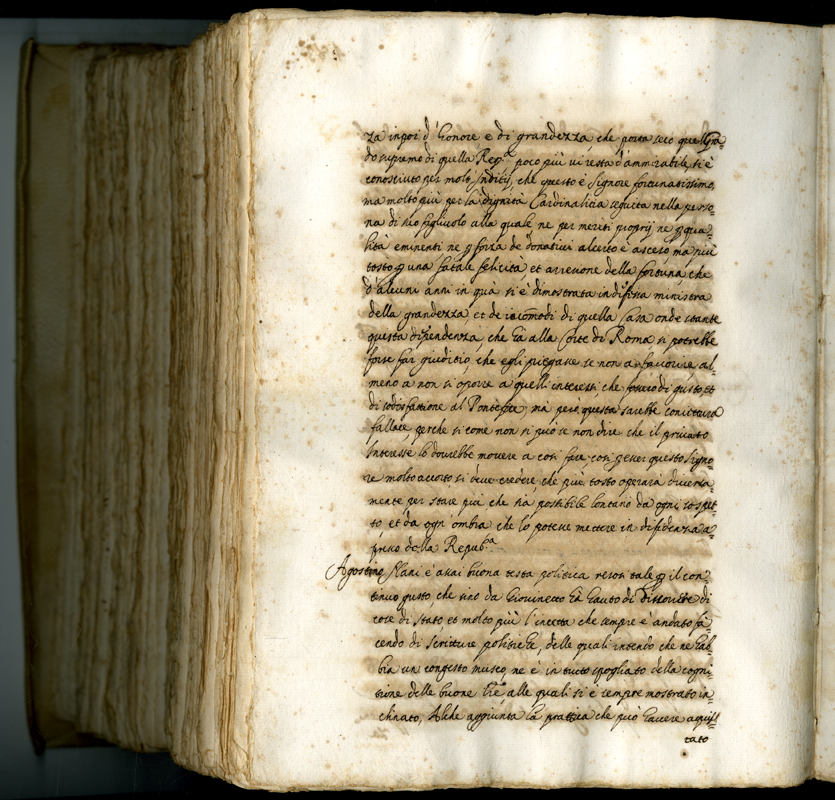 za inpoi d'honore e di grandezza che porta seco quel Gra=
do supremo di quella Rep.ca poco più vi resta d'ammirabile, si è
conosciuto per molti Inditij, che questo è Signore fortunatissimo,
ma molto più per la dignità Cardinalitia seguita nella perso=
na di suo figliuolo alla quale ne per meriti proprij ne p qua=
lità eminenti ne p forza de donativi alcerto è asceso, ma più
tosto p una fatale felicità, et arresione della fortuna, che
d'alcuni anni in quà si è dimostrata indifessa ministra
della grandezza, et de i comodi di quella Casa onde stante
questa dipendenza, che hà alla Corte di Roma si potrebbe
forse far giuditio, che egli piegasse se non a favorire, al=
meno a non si oporre a quelli interessi, che fossero di gusto, et
di sodisfattione al Pontefice; mà però questa sarebbe coniettura
fallace, perche si come non si può se non dire che il privato
Interesse lo dovrebbe movere a così fare, così p esser questo Signo=
re molto accorto si deve credere, che più tosto operarà diversa=
mente per stare più che sia possibile lontano da ogni sospet=
to, et da ogn'ombra che lo potesse mettere in difidenza a=
presso della Repub.ca
Agostino Nani è assai buona testa politica resosi tale p il con=
tinuo gusto, che sino da Giovinetto hà hauto di discorsse di
cose di stato et molto più l'incetta che sempre è andato fa=
cendo di scritture politiche, delle quali intendo che ne hab=
bia un congesto museo, ne è in tutto spogliato della cogni=
tione delle buone l.re alle quali si è sempre mostrato in=
clinato, Alche aggiunta la prattica che può havere aquis=
tato